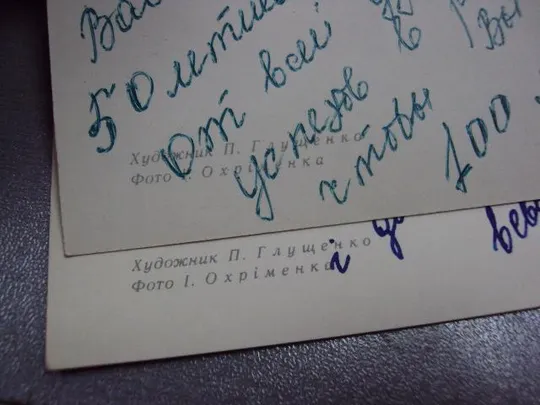 50 лети
От всей
успехов в р
чтобы Вы
100
Художник П. Глущенко
Фото І. Охріменка
і
Художник П. Глущенко
Фото І. Охріменка